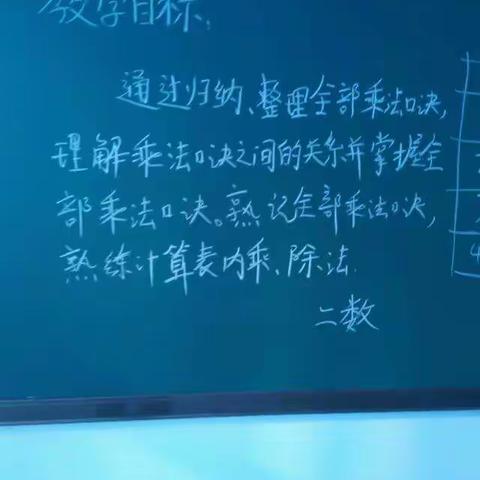 教学目标:
通过归纳、整理全部乘法口诀,
理解乘法口诀之间的关系并掌握全
部乘法口诀。熟记全部乘法口诀,
熟练计算表内乘、除法.
二数